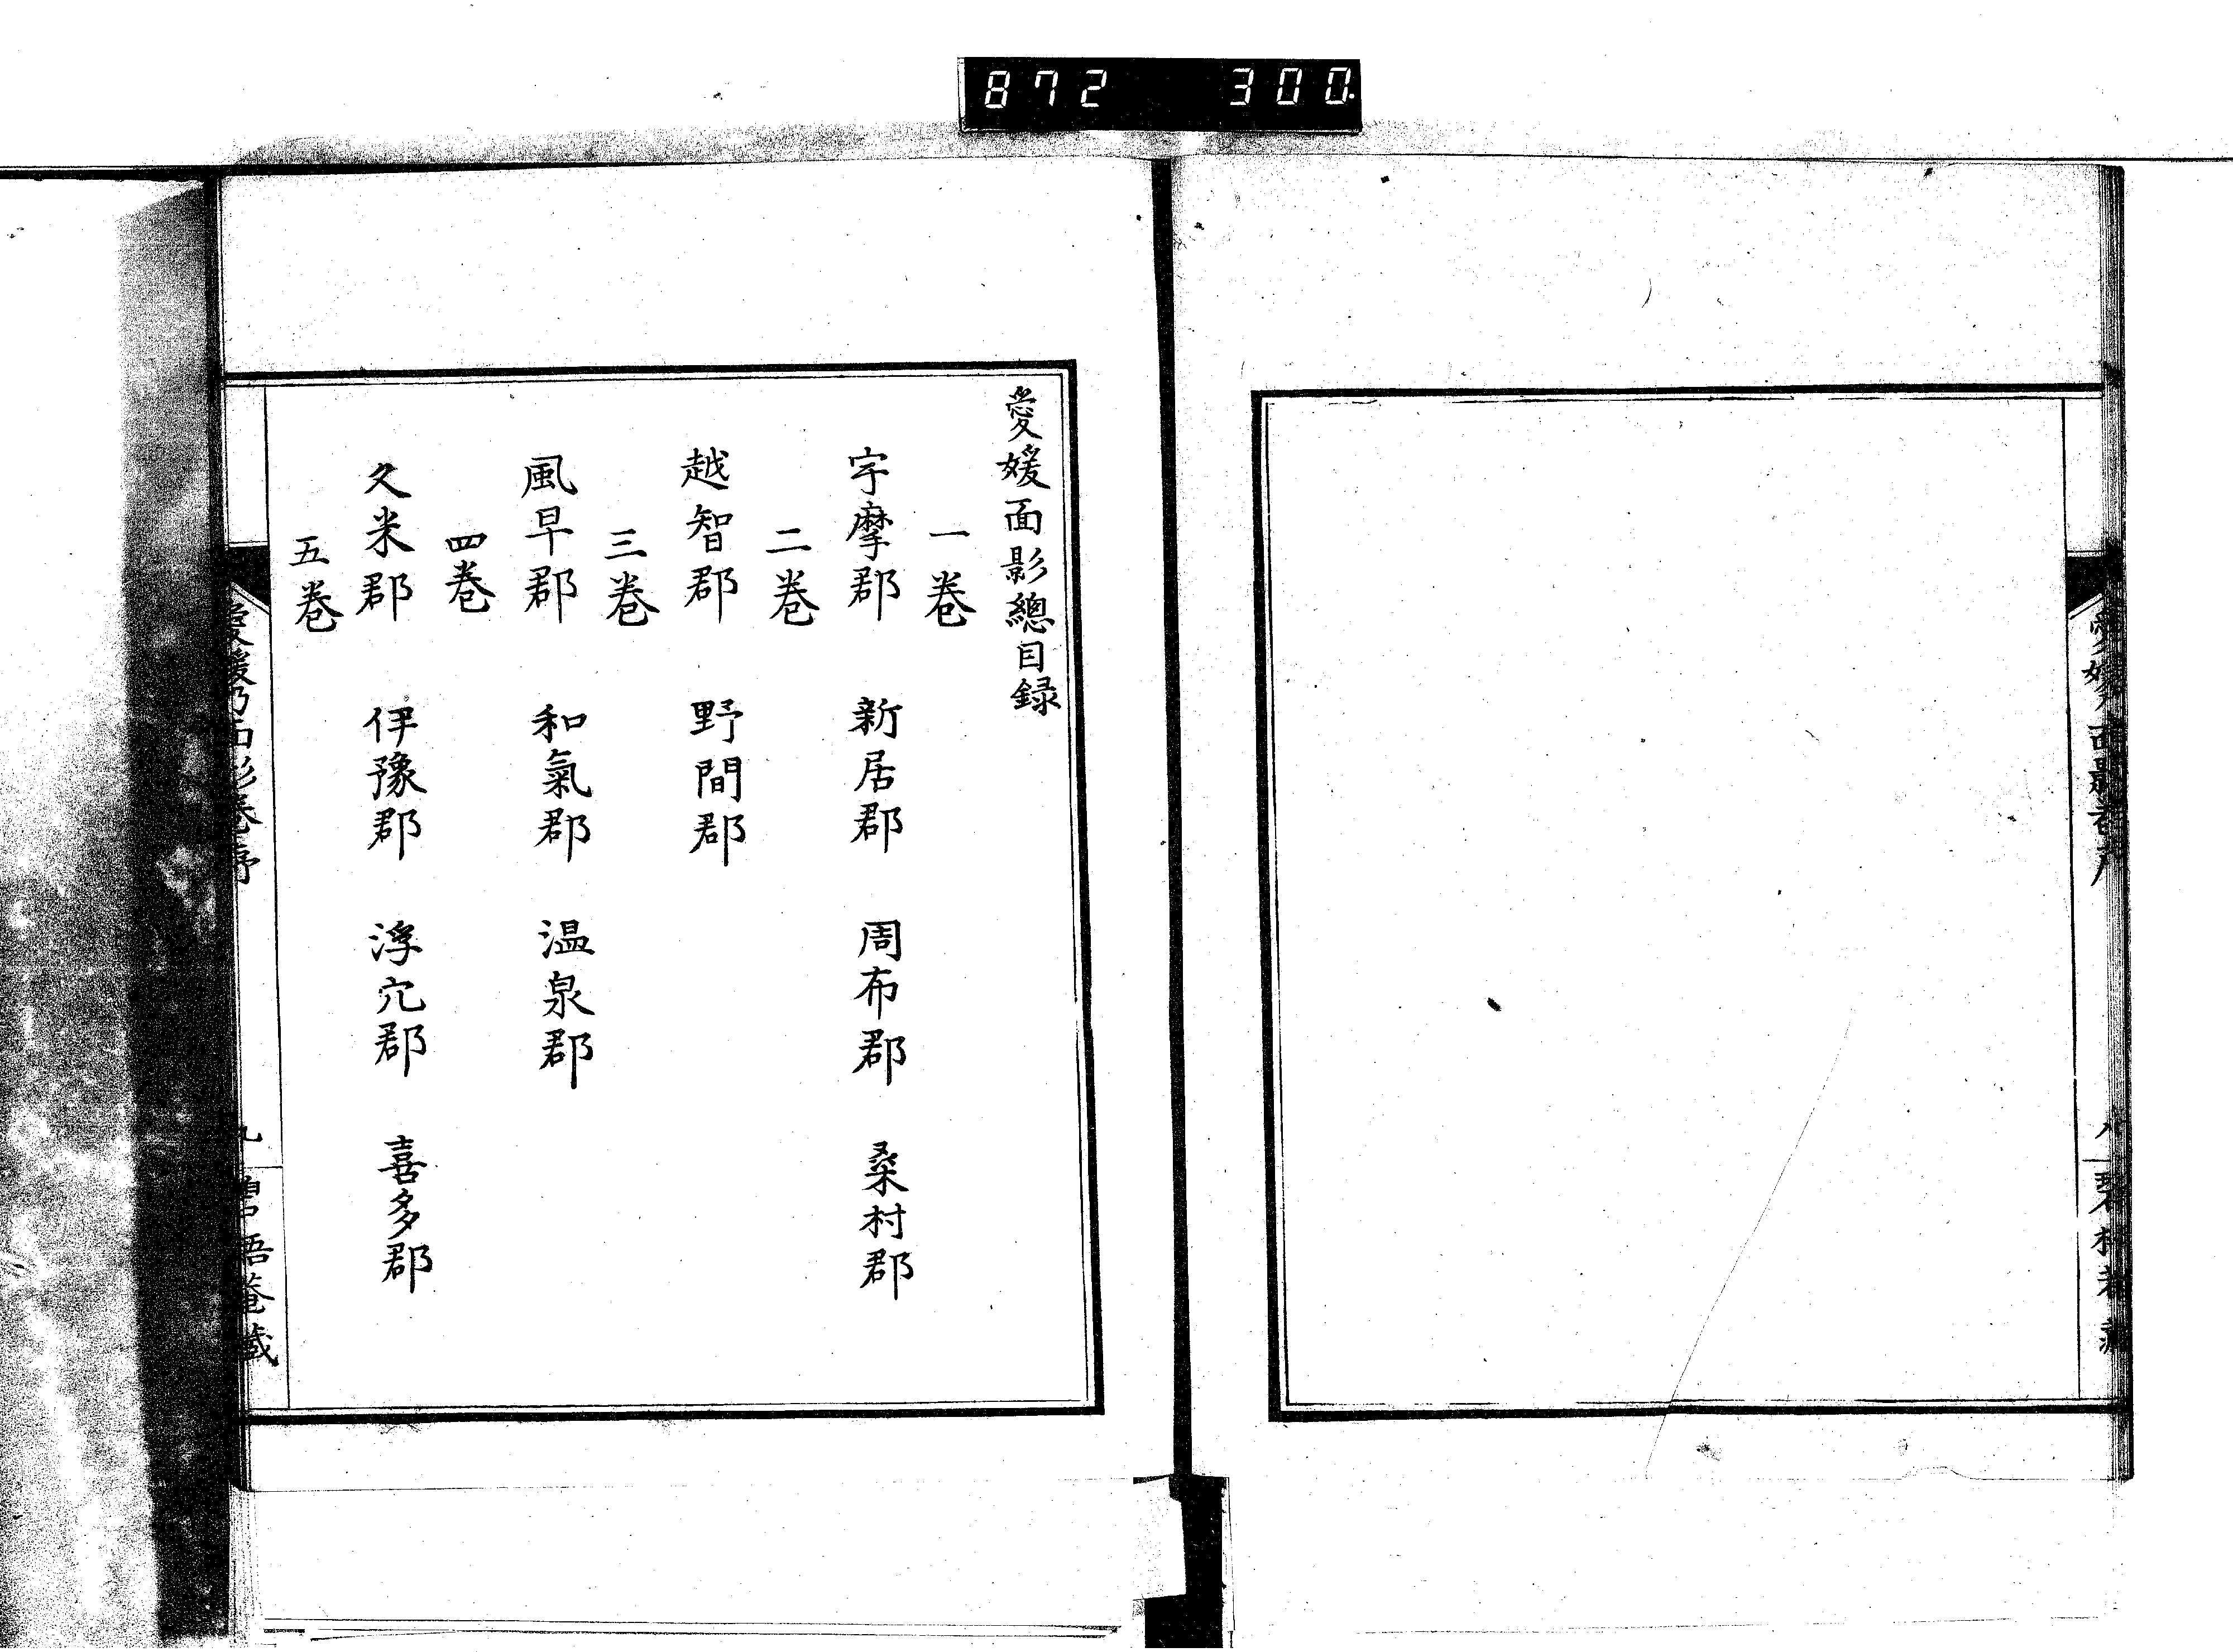 872 300
愛媛面影總目録
一卷
宇摩郡 新居郡 周布郡 桑村郡
二卷
越智郡 野間郡
三卷
風早郡 和氣郡 温泉郡
四卷
久米郡 伊豫郡 浮穴郡 喜多郡
五卷